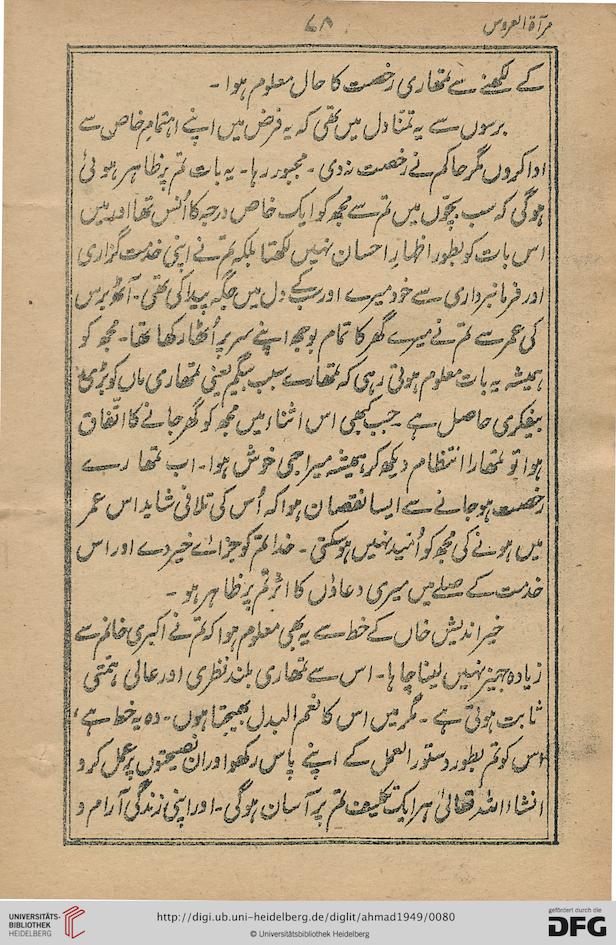 مرآۃ العروس
۶۸
کے لکھنے سے تمھاری رخصت کا حال معلوم ہوا۔
برسوں سے یہ تمنّا دل میں تھی کہ یہ فرض میں اپنے اہتمام خاص سے
ادا کروں مگر حاکم نے رخصت نہ دی۔ مجبور رہا۔ یہ بات تم پر ظاہر ہوئی
ہوگی کہ سب بچّوں میں تم سے مجھ کو ایک خاص درجہ کا اُنس تھا اور میں
اس بات کو بطور اظہارِ احسان نہیں لکھتا بلکہ تم نے اپنی خدمت گزاری
اور فرمانبرداری سے خود میرے اور سب کے دل میں جگہ پیدا کی تھی۔ آٹھ برس
کی عمر سے تم نے میرے گھر کا تمام بوجھ اپنے سر پر اُٹھا رکھا تھا۔ مجھ کو
ہمیشہ یہ بات معلوم ہوتی رہی کہ تمھارے سبب بیگم یعنی تمھاری ماں کو بڑی
بیفکری حاصل ہے۔ جب کبھی اس اثناء میں مجھ کو گھر جانے کا اتّفاق
ہوا تو تمھارا انتظام دیکھ کر ہمیشہ میرا جی خوش ہوا۔ اب تمھارے
رخصت ہو جانے سے ایسا نقصان ہوا کہ اُس کی تلافی شاید اس عمر
میں ہونے کی مجھ کو اُمّید نہیں ہوسکتی۔ خدا تم کو جزائے خیر دے اور اس
خدمت کے صلے میں میری دعاؤں کا اثر تم پر ظاہر ہو۔
خیر اندیش خاں کے خط سے یہ بھی معلوم ہوا کہ تم نے اکبری خانم سے
زیادہ جہیز نہیں لینا چاہا۔ اس سے تمھاری بلند نظری اور عالی ہمتی
ثابت ہوتی ہے۔ مگر میں اس کا نعم البدل بھیجتا ہوں۔ وہ یہ خط ہے،
اس کو تم بطور دستور العمل کے اپنے پاس رکھو اور ان نصیحتوں پر عمل کرو
انشاء اللہ تعالیٰ ہر ایک تکلیف تم پر آسان ہوگی۔ اور اپنی زندگی آرام و
UNIVERSITÄTS-
BIBLIOTHEK
HEIDELBERG
http://digi.ub.uni-heidelberg.de/diglit/ahmad1949/0080
© Universitätsbibliothek Heidelberg
gefördert durch die
DFG